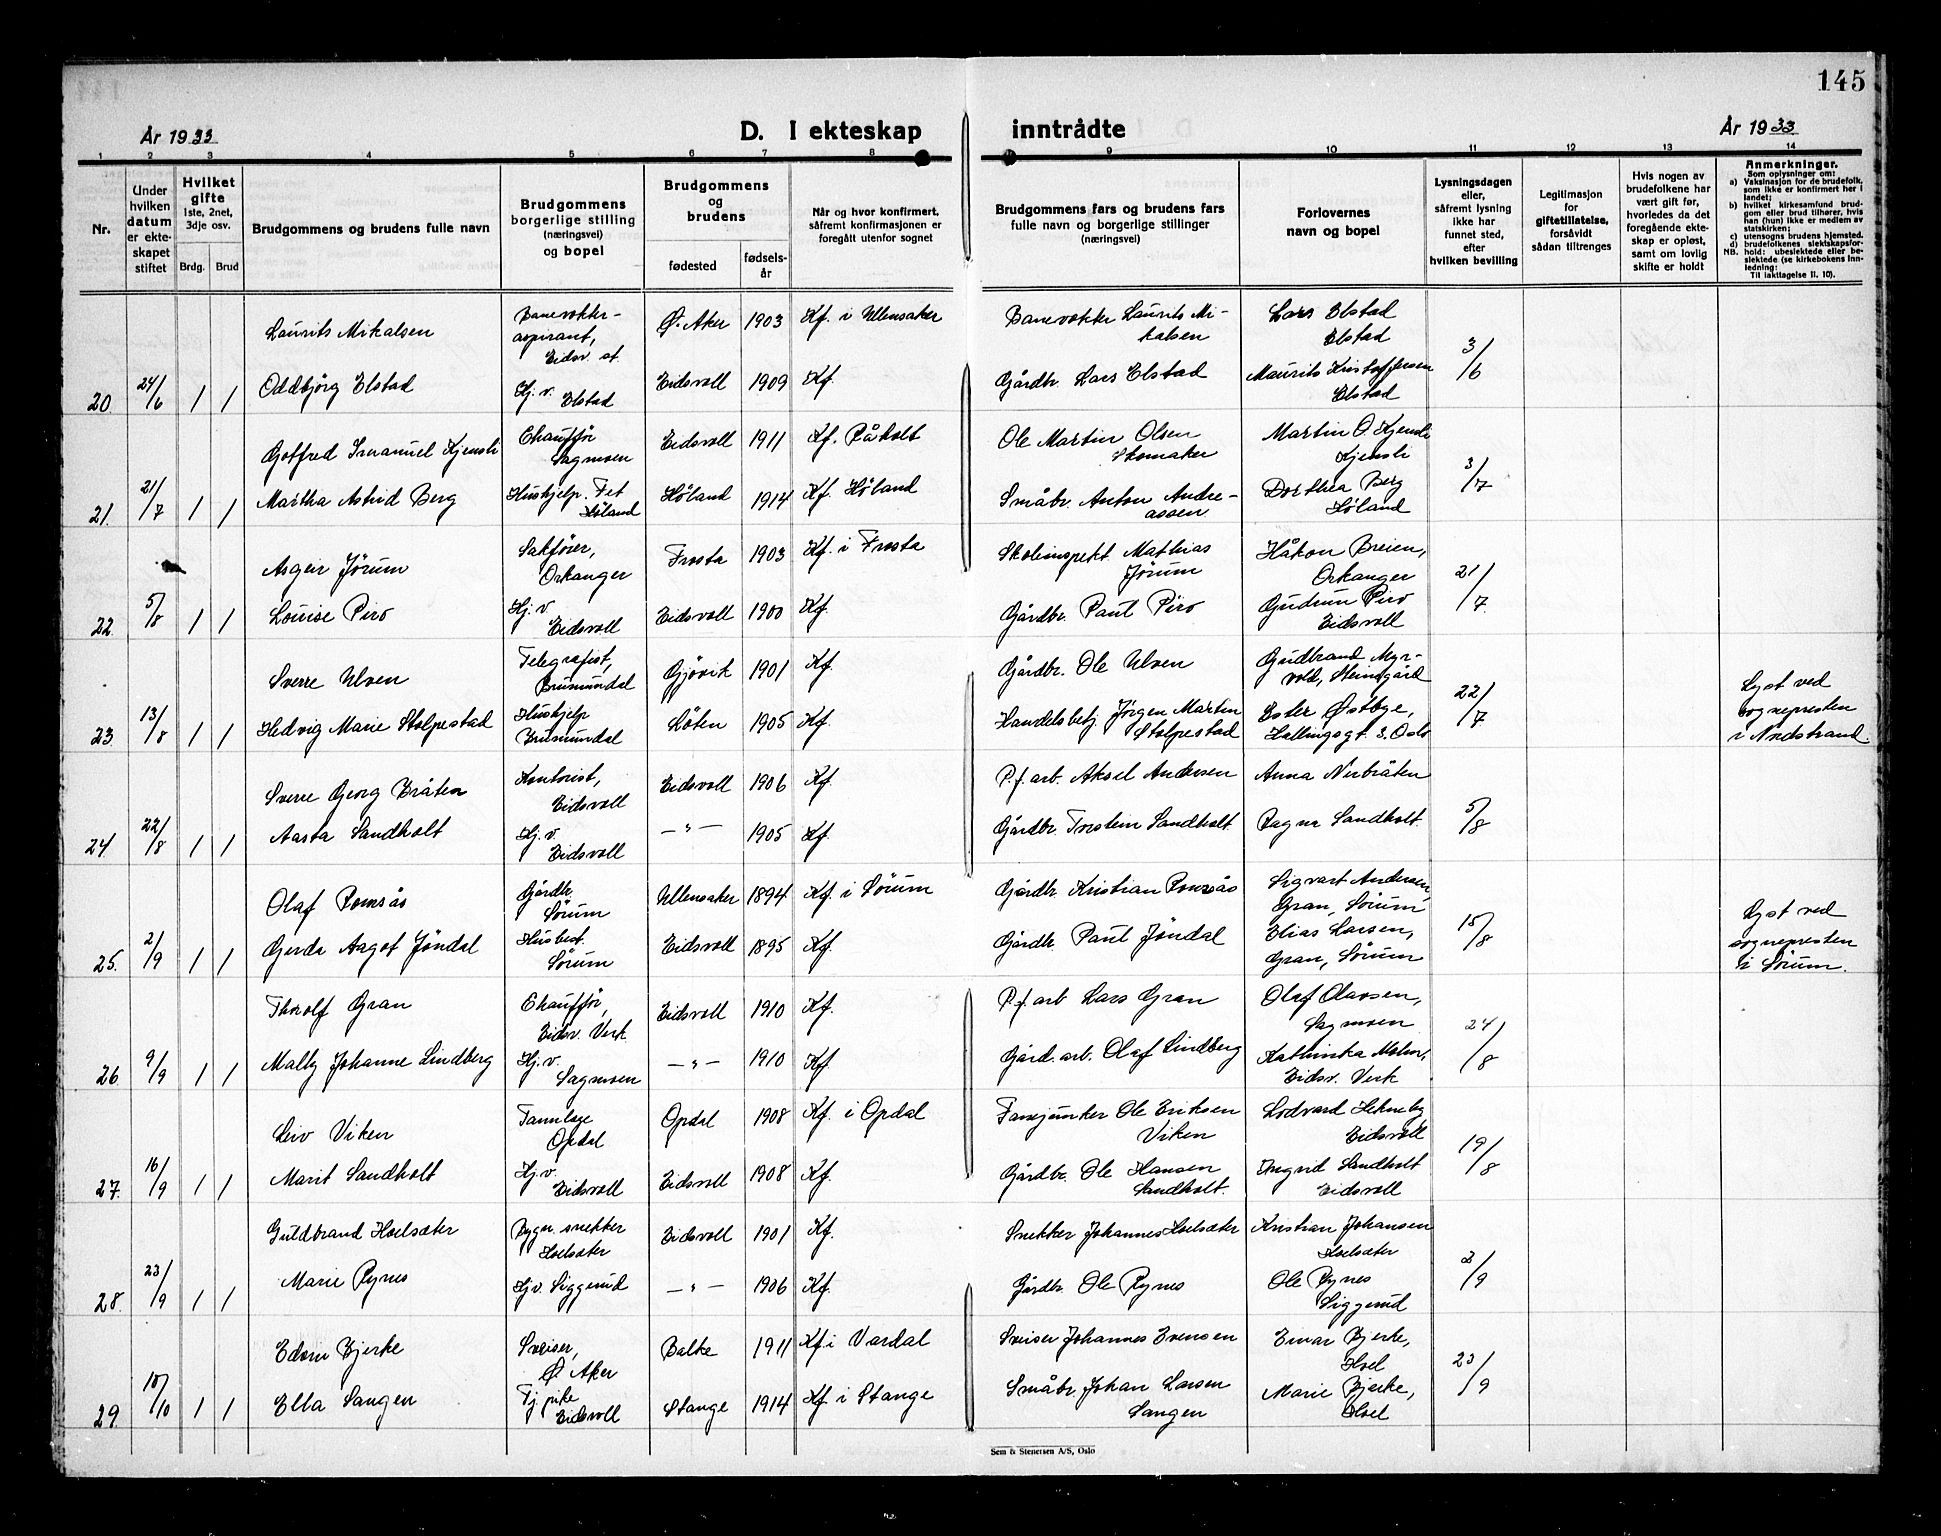 145
År 1933
D. I ekteskap inntrådte
År 1933
1 2 3 4 5 6 7 8 9 10 11 12 13 14
Nr.
Under hvilken datum er ekteskapet stiftet
Hvilket gifte
1ste, 2net, 3dje osv.
Brdg. Brud
Brudgommens og brudens fulle navn
Brudgommens borgerlige stilling (næringsvei) og bopel
Brudgommens og brudens
fødested
fødselsår
Når og hvor konfirmert, såfremt konfirmasjonen er foregått utenfor sognet
Brudgommens fars og brudens fars fulle navn og borgerlige stillinger (næringsvei)
Forlovernes navn og bopel
Lysningsdagen eller, såfremt lysning ikke har funnet sted, efter hvilken bevilling
Legitimasjon for giftetillatelse, forsåvidt sådan tiltrenges
Hvis nogen av brudefolkene har vært gift før, hvorledes da det foregående ekteskap er opløst, samt om lovlig skifte er holdt
Anmerkninger.
Som oplysninger om:
a) Vaksinasjon for de brudefolk, som ikke er konfirmert her i landet;
b) hvilket kirkesamfund brudgom eller brud tilhører, hvis han (hun) ikke er medlem av statskirken;
c) utensogns brudens hjemsted.
d) brudefolkenes slektskapsforhold: ubeslektede eller beslektede (se kirkebokens Innledning:
NB.
Til iakttagelse II. 10).
Laurits Mikalsen Banevokter-aspirant, Eidsv. st. Ø. Aker 1903 Kf. i Ullensaker Banevokter Laurits Mikalsen Lars Elstad Elstad
20. 24/6 1 1 Oddbjörg Elstad Hj. v. Elstad Eidsvoll 1909 Kf. Gårdbr. Lars Elstad Maurits Kristoffersen Elstad 3/6
Gotfred Imanuel Kjensli Chauffør Sagmoen Eidsvoll 1911 Kf. Råholt Ole Martin Olsen Skomaker Martin O. Kjensli Kjensli
21. 21/7 1 1 Martha Astrid Berg Hushjelp. Fet Höland Höland 1914 Kf. Höland Småbr. Anton Andreassen Dorthea Berg Höland 3/7
Asgeir Jörum Sakfører, Orkanger Frosta 1903 Kf. i Frosta Skoleinspekt. Mathias Jörum Håkon Breien, Orkanger
22. 5/8 1 1 Louise Piro Hj. v. Eidsvoll Eidsvoll 1900 Kf. Gårdbr. Paul Piro Gudrun Piro Eidsvoll 21/7
Sverre Ulven Telegrafist, Brumundal Gjövik 1901 Kf. Gårdbr. Ole Ulven Gudbrand Myrvold, Steinsgård
23. 13/8 1 1 Hedvig Marie Stolpestad Hushjelp Brumundal Löten 1905 Kf. Handelsbetj. Jörgen Martin Stolpestad Ester Østbye, Hallingsgt. 3. Oslo 22/7 Lyst ved sognepresten i Nordstrand.
Sverre Georg Bråten Kontorist, Eidsvoll Eidsvoll 1906 Kf. P.f. arb. Aksel Andersen Anna Nerbråten
24. 22/8 1 1 Aasta Sandholt Hj. v. Eidsvoll — " — 1905 Kf. Gårdbr. Torstein Sandholt. Ragna Sandholt. 5/8
Olaf Romsås Gårdbr. Sörum Ullensaker 1894 Kf. i Sörum Gårdbr. Kristian Romsås Sigvart Andersen Gran, Sörum
25. 2/9 1 1 Gerda Aagot Jöndal Husbest. Sörum Eidsvoll 1895 Kf. Gårdbr. Paul Jöndal Elias Larsen, Gran, Sörum 15/8 Lyst ved sognepresten i Sörum.
Thorolf Gran Chauffør, Eidsv. Verk Eidsvoll 1910 Kf. P.f. arb. Lars Gran Olaf Olavsen, Sagmoen
26. 9/9 1 1 Mally Johanne Lindberg Hj. v. Sagmoen — " — 1910 Kf. Gård. arb. Olaf Lindberg Kathinka Malm, Eidsv. Verk 24/8
Leiv Viken Tannlæge Opdal Opdal 1908 Kf. i Opdal Fanejunker Ole Eriksen Viken Lodvard Hekneby Eidsvoll
27. 16/9 1 1 Marit Sandholt Hj. v. Eidsvoll Eidsvoll 1908 Kf. Gårdbr. Ole Hansen Sandholt. Ingrid Sandholt Eidsvoll 19/8
Guldbrand Hoelsæter Bygn. snekker Hoelsæter Eidsvoll 1901 Kf. Snekker Johannes Hoelsæter Kristian Johansen Hoelsæter
28. 23/9 1 1 Marie Rynes Hj. v. Siggerud — " — 1906 Kf. Gårdbr. Ole Rynes Ole Rynes Siggerud 2/9
Edvin Bjerke Sveiser, Ø. Aker Balke 1911 Kf. i Vardal Sveiser Johannes Evensen Einar Bjerke, Hoel
29. 15/10 1 1 Ella Sangen Tj. pike Eidsvoll Stange 1914 Kf. i Stange Småbr. Johan Larsen Sangen Marie Bjerke, Hoel 23/9
Sem & Stenersen A/S, Oslo